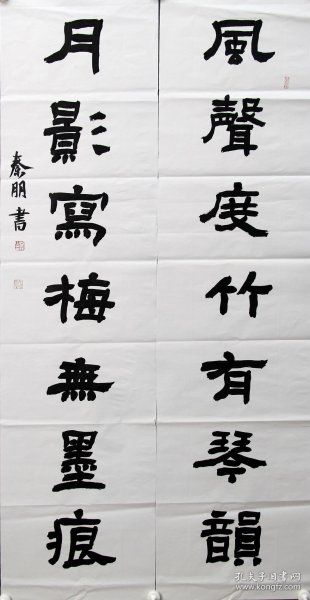 風聲度竹有琴韻
月影寫梅無墨痕
秦朋書
孔夫子旧书网
www.kongfz.com